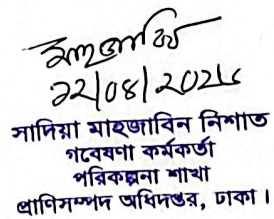 ২২/০৪/২০২৫
সাদিয়া মাহজাবিন নিশাত
গবেষণা কর্মকর্তা
পরিকল্পনা শাখা
প্রাণিসম্পদ অধিদপ্তর, ঢাকা।